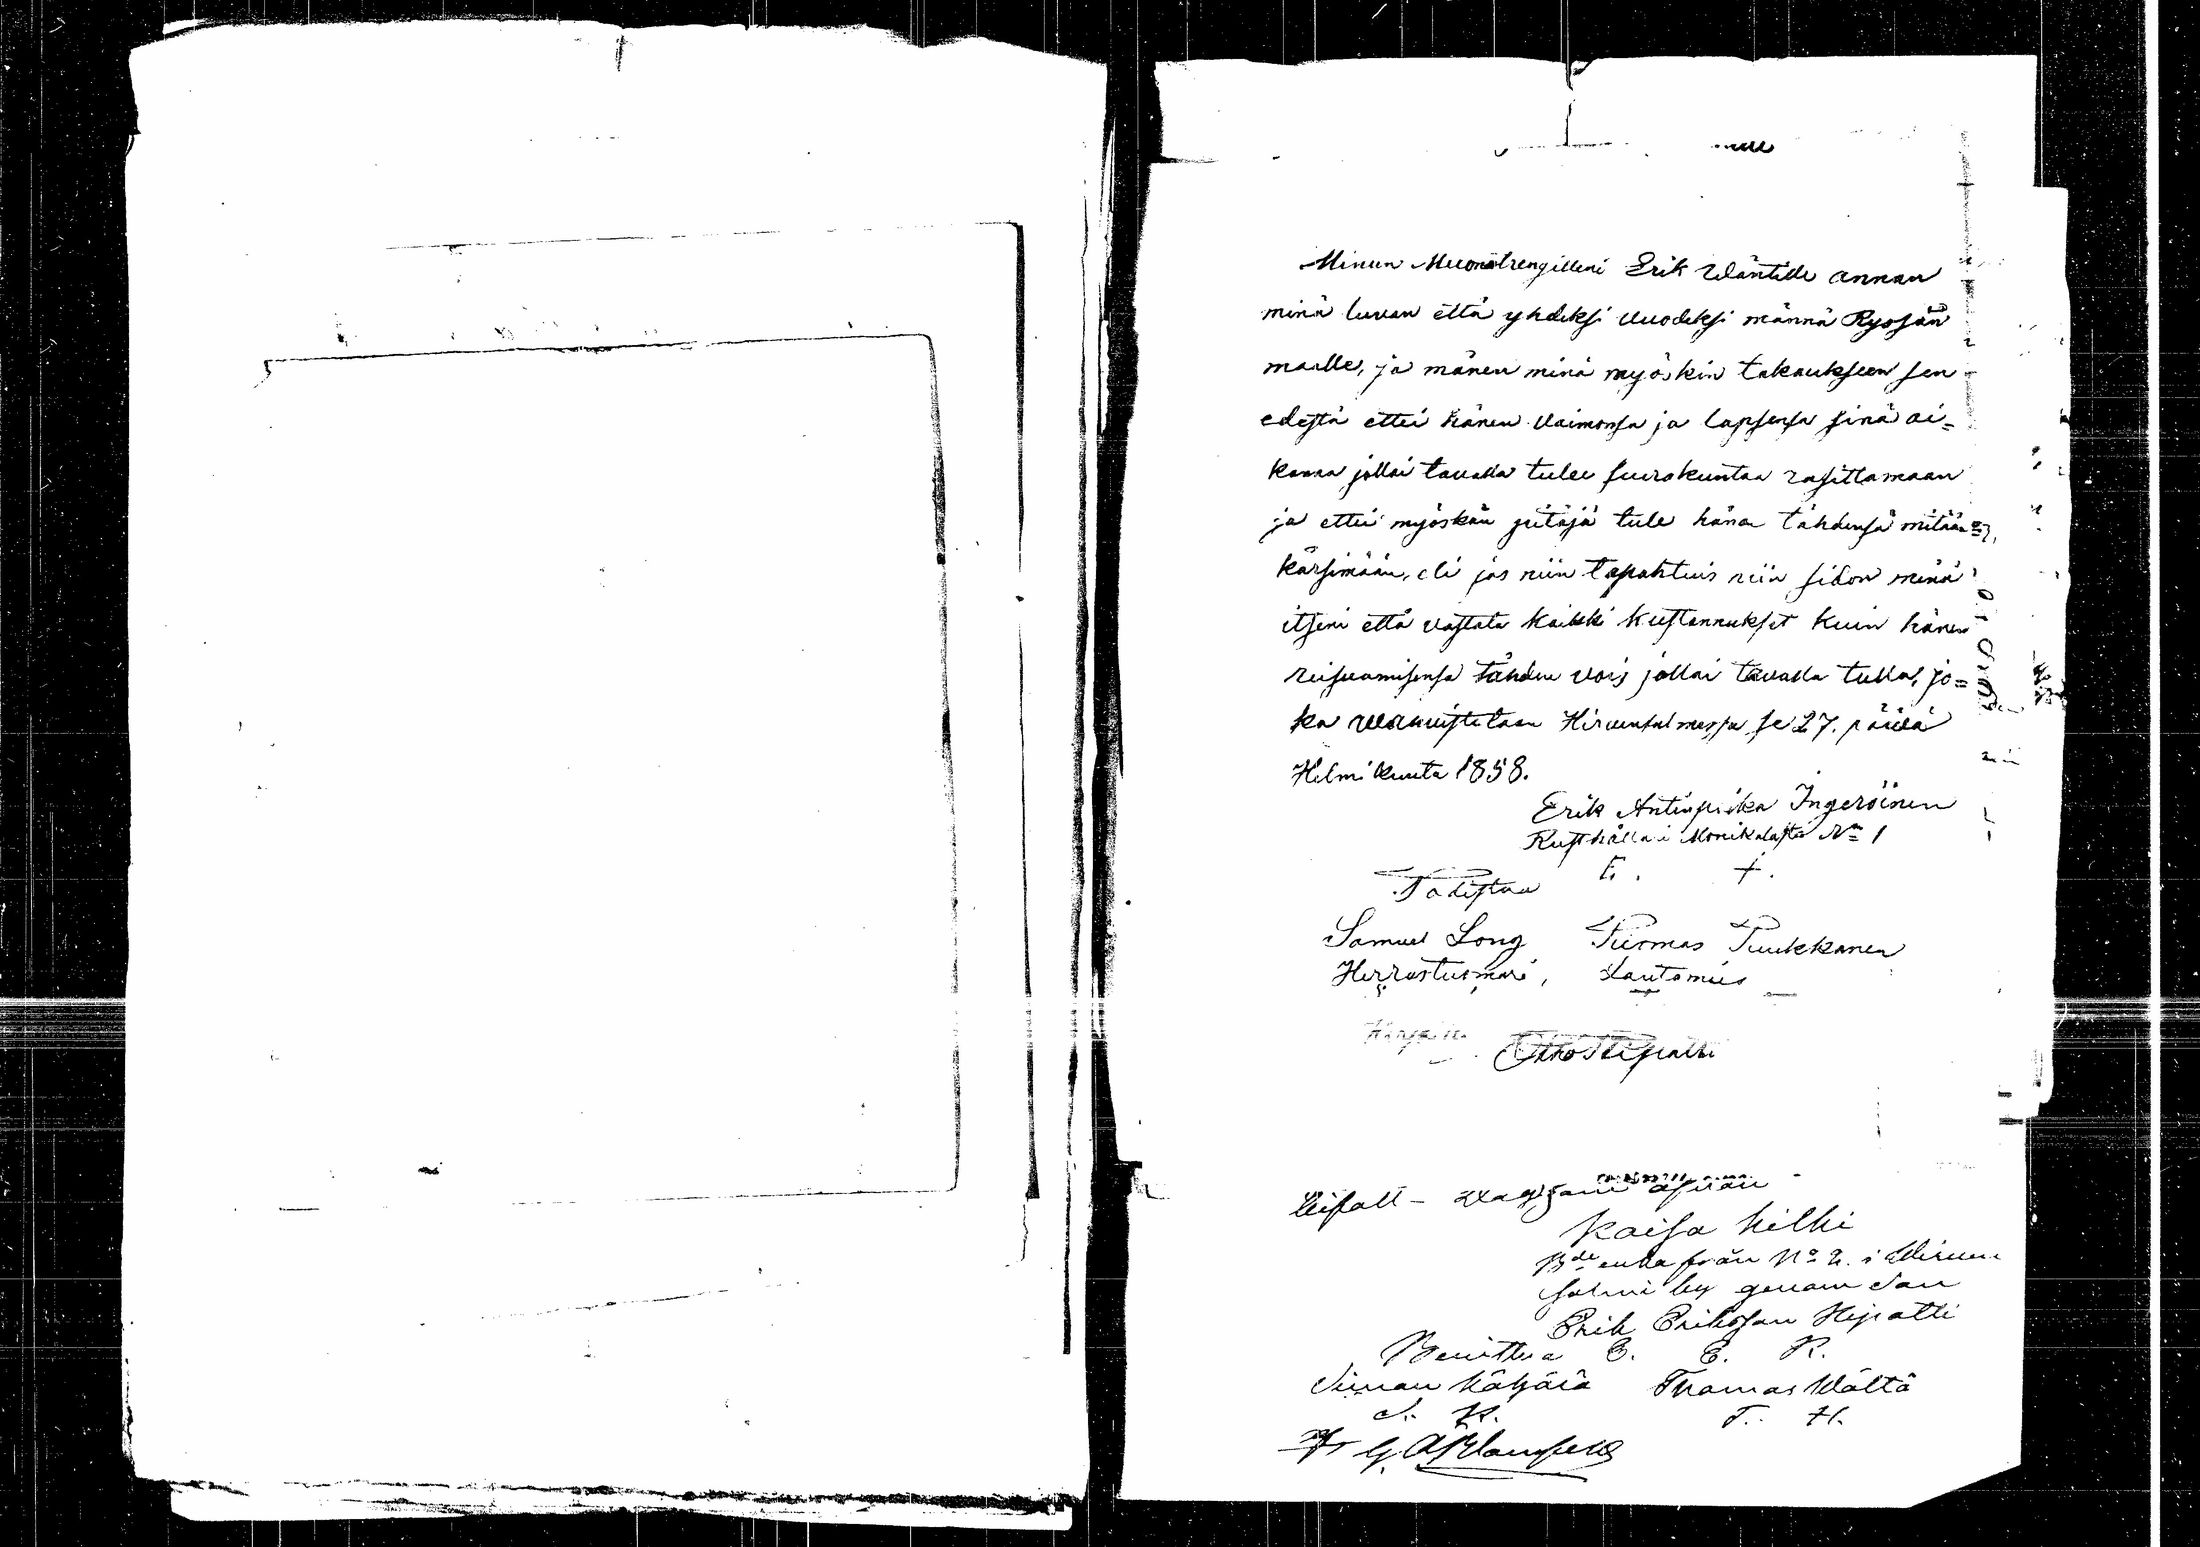 Minun Muonatrengilleni Erik Wäntille annan
minä luvan että yhdeksi vuodeksi männä Ryssän
maalle, ja mänen minä myöskin takaukseen sen
edestä ettei hänen vaimonsa ja lapsensa sinä ai=
kana jollai tavalla tulee seurakuntaa rasittamaan
ja ettei myöskän pitäjä tule hänen tähdensä mitään
kärsimään, eli jos niin tapahtuis niin sidon minä
itseni että vastata kaikki kustannukset kuin hänen
reisuamisensa tähden vois jollai tavalla tulla, jo=
ka vanvistetaan Hirvensalmessa se 27. päivä
Helmikuuta 1858.
Erik Antinpoika Ingeröinen
Rusthållari Monikalasta No 1
E. +.
Todistaa
Samuel Long Tuomas Puukkanen
Herrastuomari, Lautamies
Otto Reipatti
Kaisa
enka från No 2. i Hirven
salmi by genom son
Erik Eriksson Reipatti
Bevittna E. E. R.
Siman Thomas
S. K. T. H.